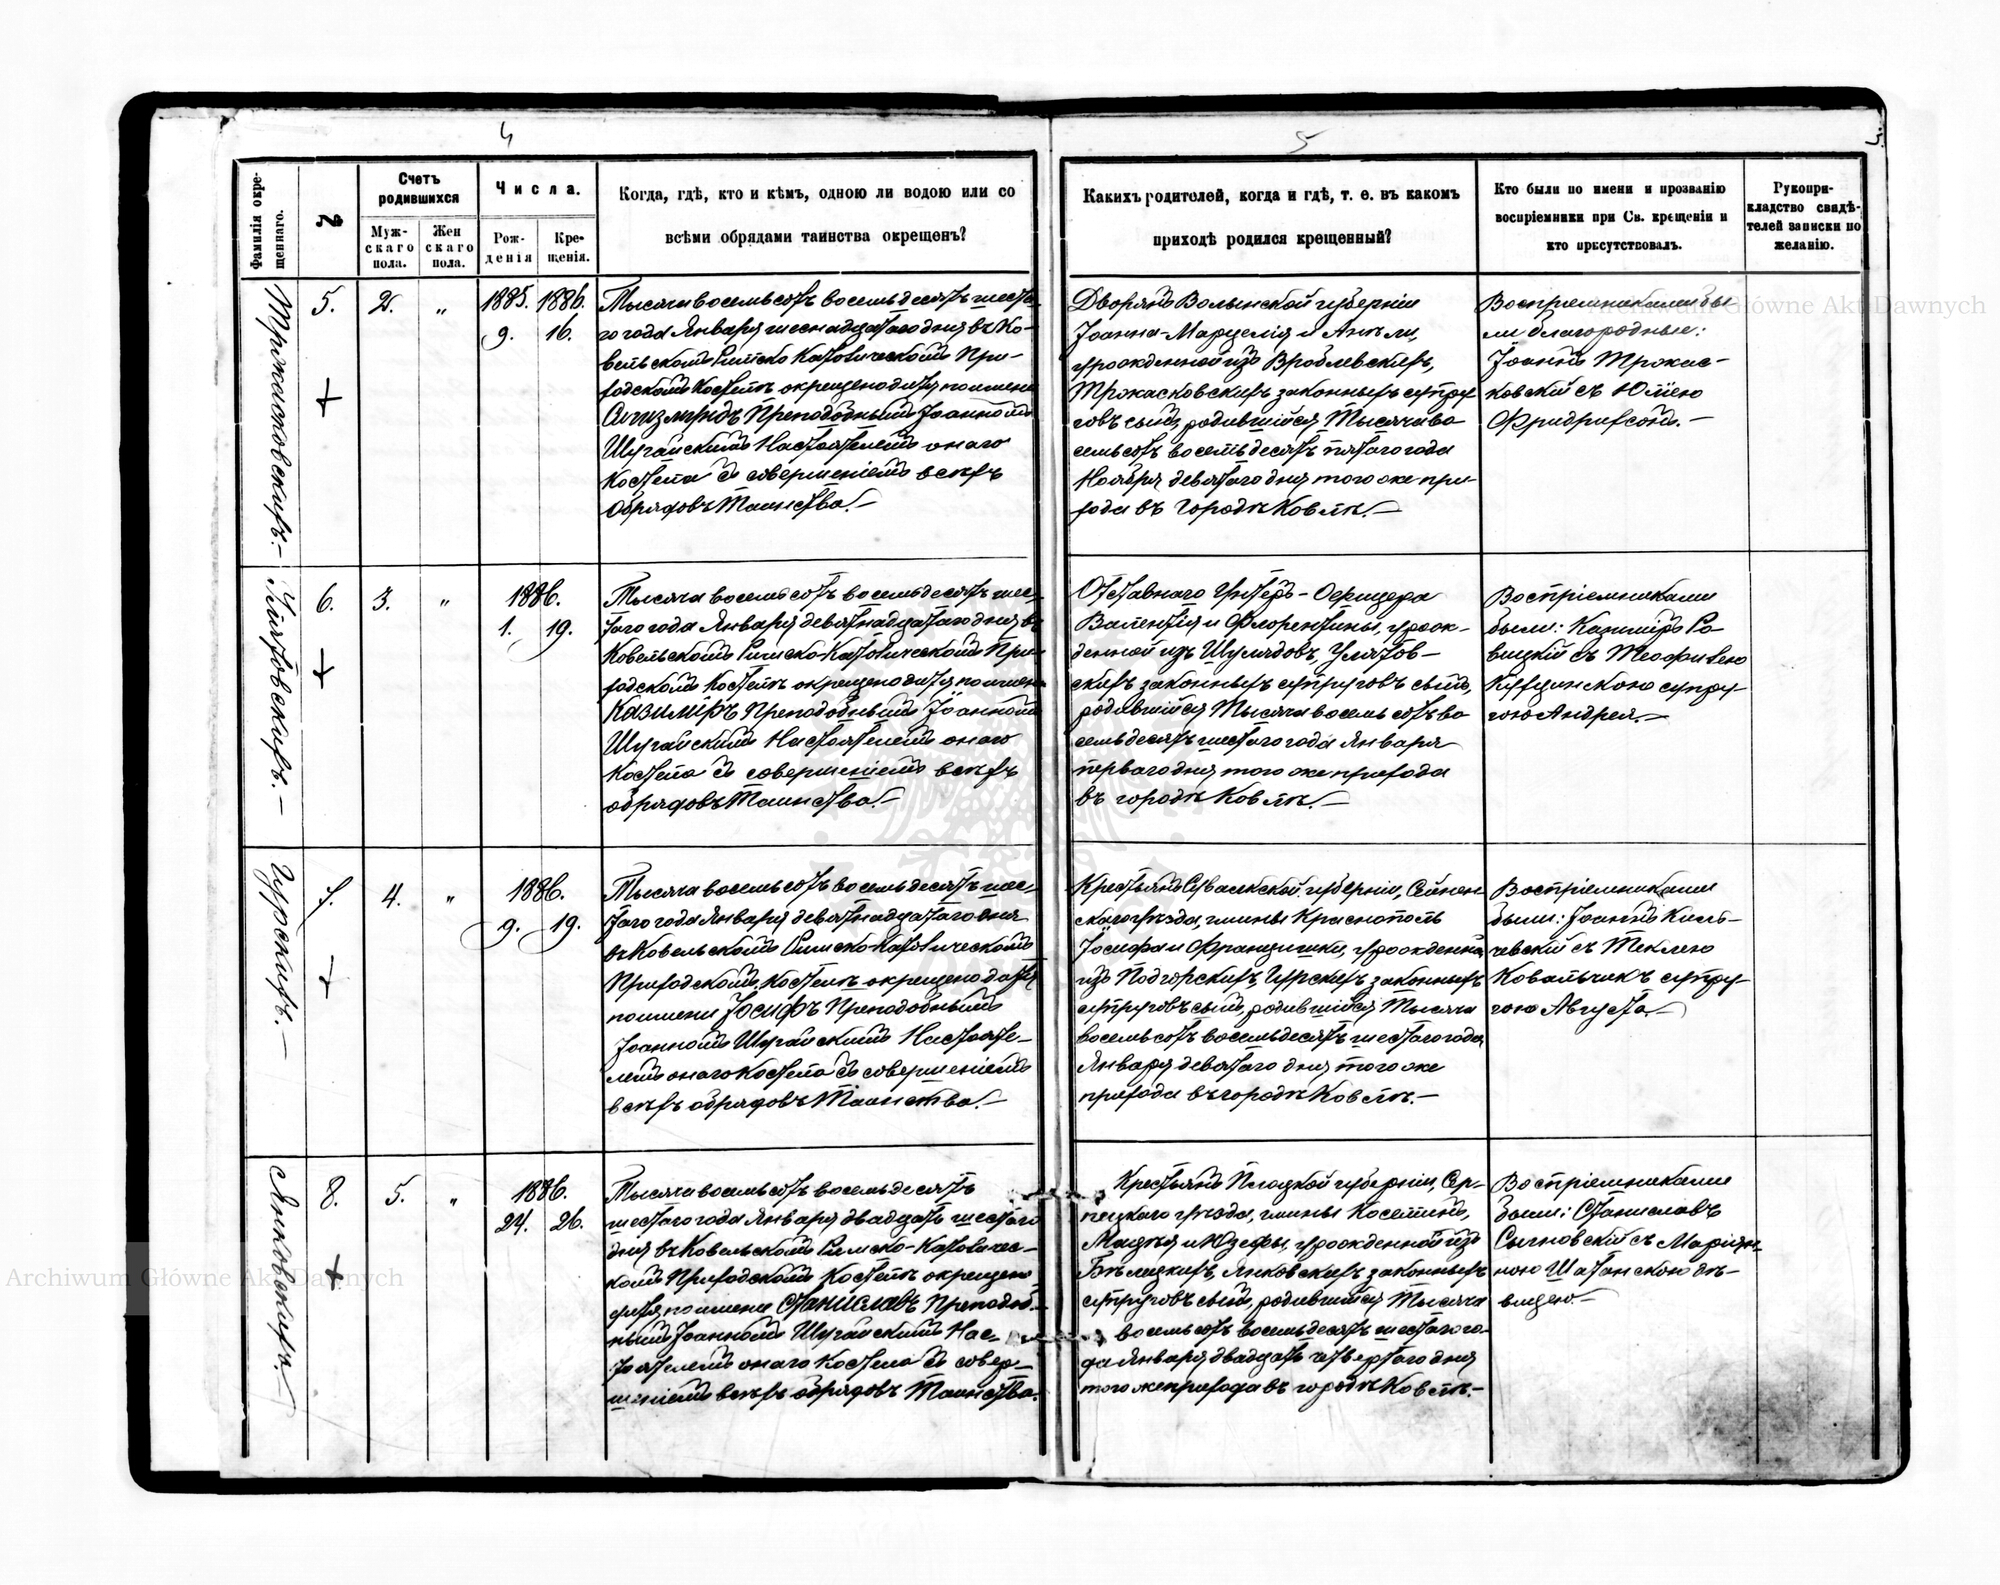 4
5
5.
Фамилія окре-
щеннаго.
№
Счетъ
родившихся
Муж-
скаго
пола.
Жен
скаго
пола.
Числа.
Рож-
денія
Кре-
щенія.
Когда, гдѣ, кто и кѣмъ, одною ли водою или со
всѣми обрядами таинства окрещенъ?
Какихъ родителей, когда и гдѣ, т. е. въ какомъ
приходѣ родился крещенный?
Кто были по имени и прозванію
воспріемники при Св. крещеніи и
кто присутствовалъ.
Рукопри-
кладство свидѣ-
телей записки по
желанію.
5. 2. „
1885. 1886.
9. 16.
Тысяча восемьсотъ восемьдесятъ шеста-
го года Января шестнадцатаго дня въ Ко-
вельскомъ Римско Католическомъ При-
ходскомъ Костелѣ окрещено дитя по имени
Сигизмундъ Преподобнымъ Іоанномъ
Шугайскимъ Настоятелемъ онаго
Костела съ совершеніемъ всѣхъ
обрядовъ Таинства.—
Дворянъ Волынской губерніи
Іоанна-Марцелія и Анели,
урожденной изъ Вроблевскихъ,
законныхъ супру
говъ сынъ, родившійся Тысяча во
семьсотъ восемьдесятъ пятаго года
Ноября девятаго дня того же при-
хода въ городѣ Ковлѣ.—
Воспріемниками бы
ли благородные:
Іоаннъ
ковскій съ Юліею
6. 3. „
1886.
1. 19.
Улятовскихъ.—
Тысяча восемьсотъ восемьдесятъ шес-
таго года Января девятнадцатаго дня въ
Ковельскомъ Римско-Католическомъ При
ходскомъ Костелѣ окрещено дитя по имени
Казиміръ Преподобнымъ Іоанномъ
Шугайскимъ Настоятелемъ онаго
Костела съ совершеніемъ всѣхъ
обрядовъ Таинства.—
Отставнаго Унтеръ-Офицера
Валентія и Флорентины, урож-
денной изъ Шулядовъ, Улятов-
скихъ законныхъ супруговъ сынъ,
родившійся Тысяча восемьсотъ во
семьдесятъ шестаго года Января
перваго дня того же прихода
въ городѣ Ковлѣ.—
Воспріемниками
были: Казиміръ Ро
вицкій съ Теофилею
супру-
гою Андрея.—
7. 4. „
1886.
9. 19.
Гурскихъ.—
Тысяча восемьсотъ восемьдесятъ шес-
таго года Января девятнадцатаго дня
въ Ковельскомъ Римско-Католическомъ
Приходскомъ Костелѣ окрещено дитя
по имени Іосифъ Преподобнымъ
Іоанномъ Шугайскимъ Настояте-
лемъ онаго Костела съ совершеніемъ
всѣхъ обрядовъ Таинства.—
Крестьянъ Сувалкской губерніи, Сейнен
скаго уѣзда, гмины Краснополь
Іосифа и Францишки, урожденной
изъ Подгорскихъ, Гурскихъ законныхъ
супруговъ сынъ, родившійся Тысяча
восемьсотъ восемьдесятъ шестаго года
Января девятаго дня того же
прихода въ городѣ Ковлѣ.—
Воспріемниками
были: Іоаннъ Киль-
чевскій съ Теклею
Ковальчикъ супру-
гою Августа.—
8. 5. „
1886.
24. 26.
Янковскихъ.—
Тысяча восемьсотъ восемьдесятъ
шестаго года Января двадцать шестаго
дня въ Ковельскомъ Римско-Католичес-
комъ Приходскомъ Костелѣ окрещено
дитя по имени Станиславъ Преподоб-
нымъ Іоанномъ Шугайскимъ Нас-
тоятелемъ онаго Костела съ совер-
шеніемъ всѣхъ обрядовъ Таинства.
Крестьянъ Плоцкой губерніи, Сер-
пецкаго уѣзда, гмины Косеминъ,
Мацѣя и Юзефы, урожденной изъ
Бѣлицкихъ, Янковскихъ законныхъ
супруговъ сынъ, родившійся Тысяча
восемьсотъ восемьдесятъ шестаго го-
да Января двадцать четвертаго дня
того же прихода въ городѣ Ковлѣ.—
Воспріемниками
были: Станиславъ
Сычновскій съ Маріян-
ною Шатанскою дѣ-
вицею.—
Archiwum Główne Akt Dawnych
Archiwum Główne Akt Dawnych